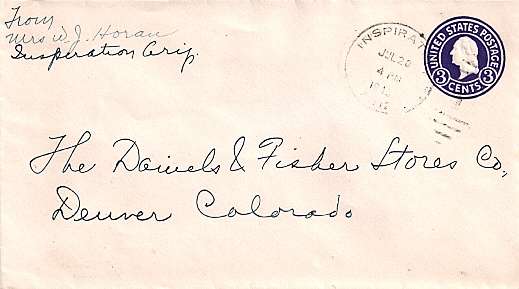 From
Mrs W. J. Horan
Inspiration Ariz.
INSPIRAT
JUL 20
4 PM
ARIZ
UNITED STATES POSTAGE
3 CENTS 3
The Daniels & Fisher Stores Co.,
Denver Colorado